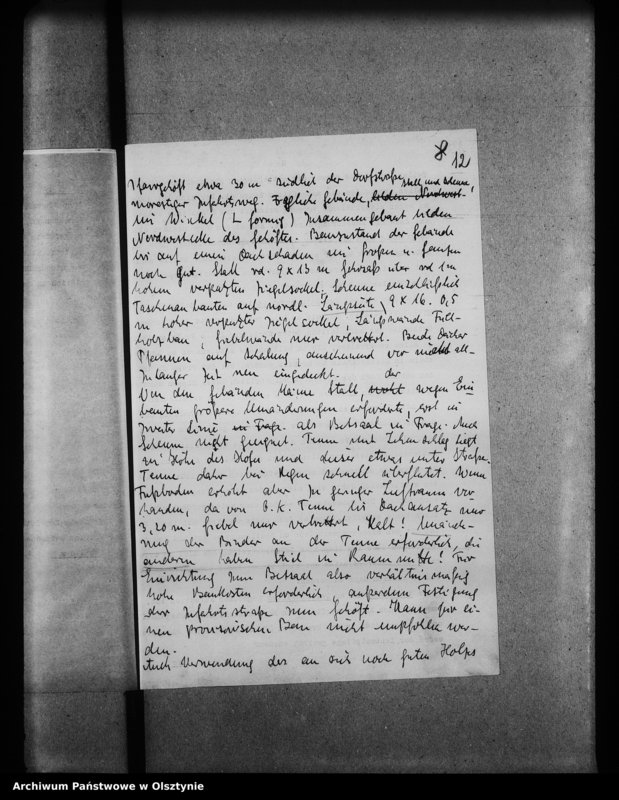 8 12
Pfarrgehöft etwa 30 m südlich der Dorfstraße Stall und Scheune,
morastiger Zufahrtsweg. Fragliche Gebäude, bilden Nordwest-
im Winkel (L förmig) zusammengebaut bilden
Nordwestecke des Gehöftes. Bauzustand der Gebäude
bis auf einen Dachschaden im Großen u. Ganzen
noch gut. Stall rd. 9 x 13 m Geschoß über rd 1 m
hohem verputzten Ziegelsockel. Scheune einschließlich
Taschenanbauten auf nördl. Längsseite 9 x 16. 0,5
m hoher verputzter Ziegelsockel, Längswände Voll-
holzbau, Giebelwände nur verbrettert. Beide Dächer
Pfannen auf Schalung, anscheinend vor nicht all-
zulanger Zeit neu eingedeckt. der
Von den Gebäuden käme Stall, wegen Ein-
bauten größere Umänderungen erfordert, erst in
zweiter Linie in Frage als Betsaal in Frage. Auch
Scheune nicht geeignet. Tenne mit Lehmschlag liegt
in Höhe des Hofes und dieser etwas unter Straße.
Tenne daher bei Regen schnell überflutet. Wenn
Fußboden erhöht aber zu geringer Luftraum vor-
handen, da von O.K. Tenne bis Dachansatz nur
3,20 m. Giebel nur verbrettert, kalt! Umände-
rung der Binder an der Tenne erforderlich, die
anderen haben Stiel in Raummitte! Für
Einrichtung zum Betsaal also verhältnismäßig
hohe Baukosten erforderlich, außerdem Festigung
der Zufahrtsstraße zum Gehöft. Kann für ei-
nen provisorischen Bau nicht empfohlen wer-
den.
Auch Verwendung des an sich noch guten Holzes
Archiwum Państwowe w Olsztynie